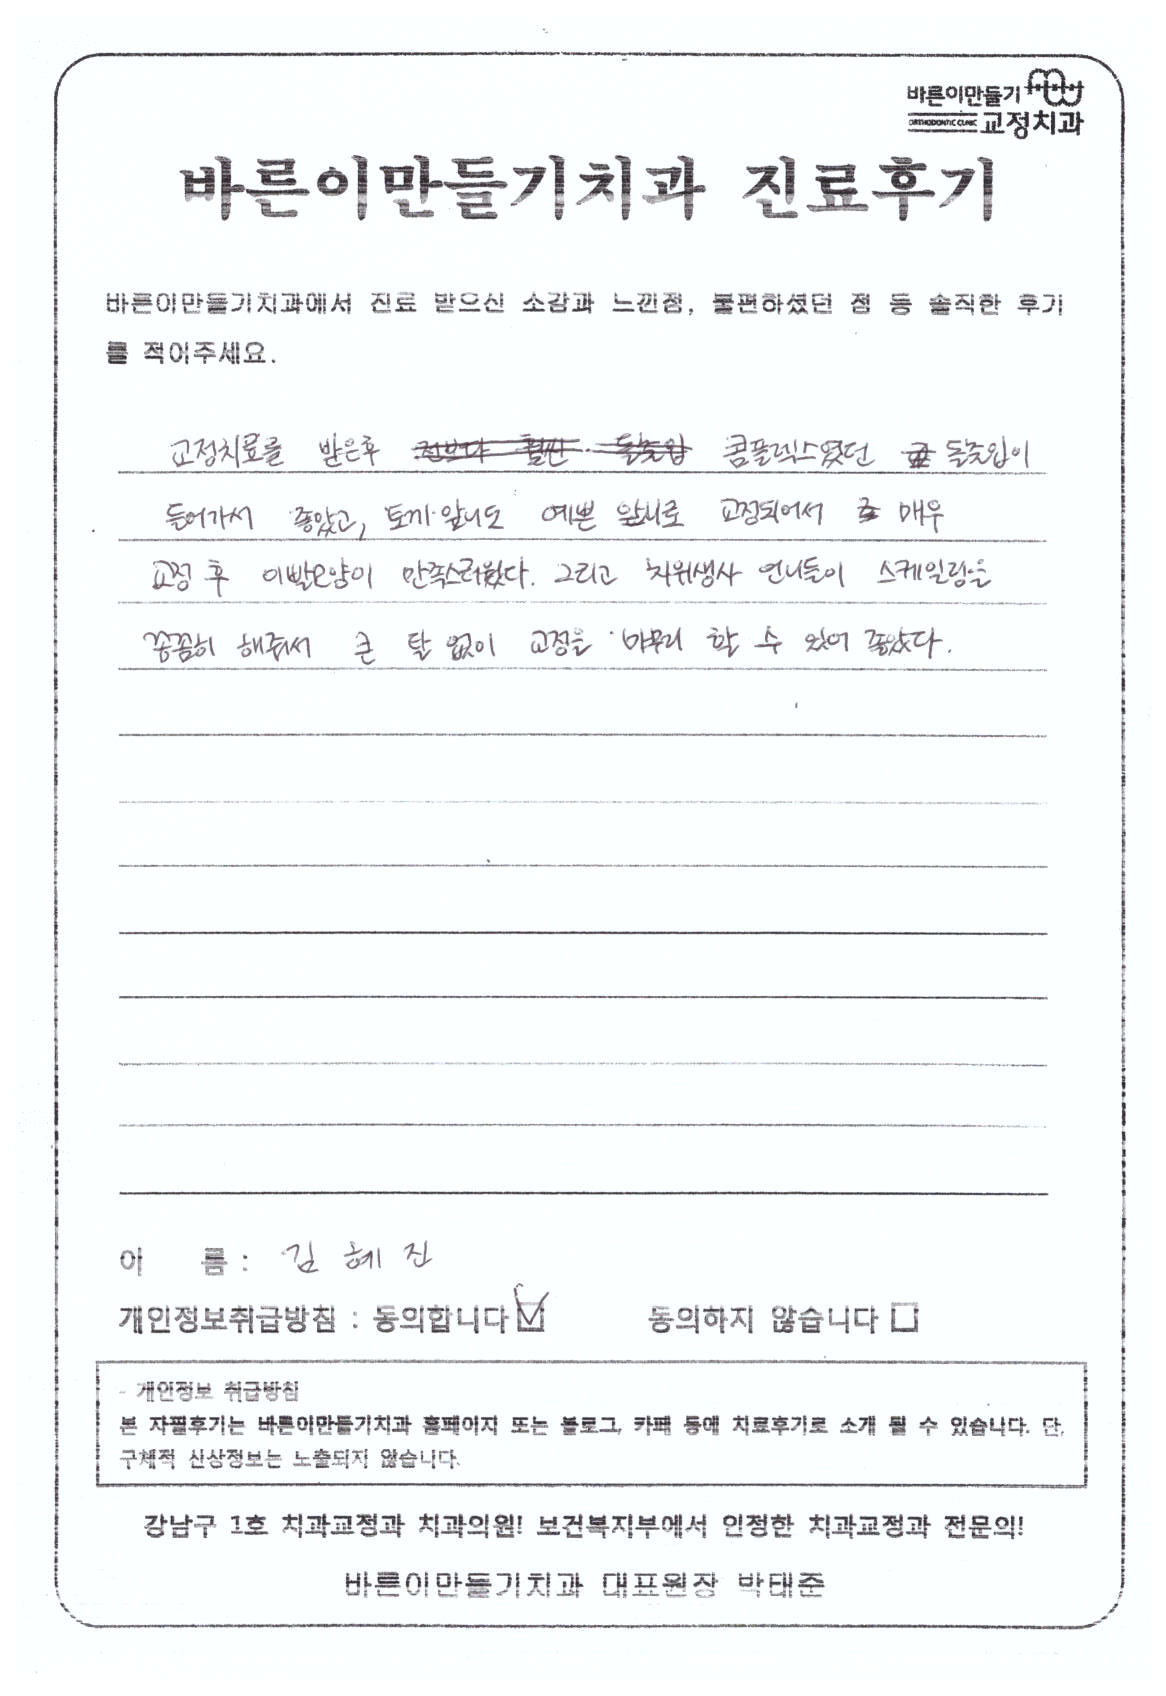 바른이만들기
ORTHODONTIC CLINIC 교정치과
바른이만들기치과 진료후기
바른이만들기치과에서 진료 받으신 소감과 느낀점, 불편하셨던 점 등 솔직한 후기
를 적어주세요.
교정치료를 받은후 콤플렉스였던 돌출입이
들어가서 좋았고, 토끼앞니도 예쁜 앞니로 교정되어서 매우
교정 후 이빨모양이 만족스러웠다. 그리고 치위생사 언니들이 스케일링을
꼼꼼히 해줘서 큰 탈 없이 교정을 마무리 할 수 있어 좋았다.
이 름 : 김혜진
개인정보취급방침 : 동의합니다 동의하지 않습니다
- 개인정보 취급방침
본 자필후기는 바른이만들기치과 홈페이지 또는 블로그, 카페 등에 치료후기로 소개 될 수 있습니다. 단,
구체적 신상정보는 노출되지 않습니다.
강남구 1호 치과교정과 치과의원! 보건복지부에서 인정한 치과교정과 전문의!
바른이만들기치과 대표원장 박태준